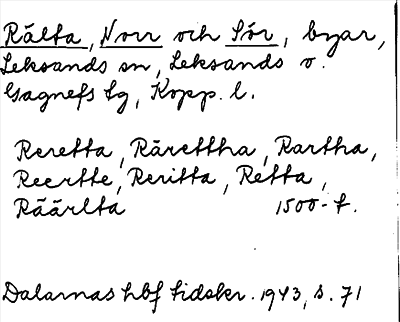 Rälta, Norr och Sör, byar,
Leksands sn, Leksands o.
Gagnefs tg, Kopp. l.
Reretta, Rärettha, Rartha,
Reertte, Reritta, Retta,
Räärlta 1500-t.
Dalarnas hbf tidskr. 1943, s. 71